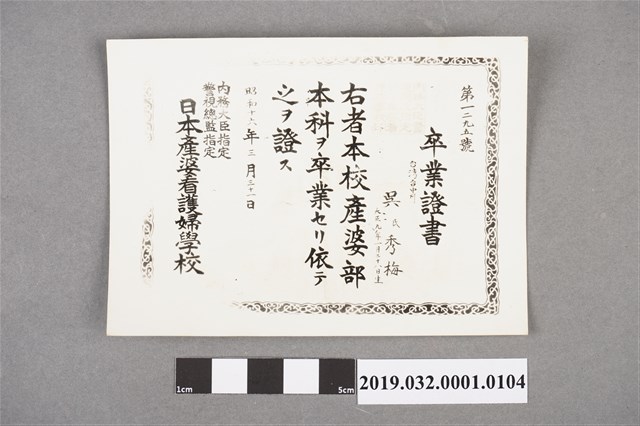 第一二九五號
卒業證書
台湾台中州
呉氏秀梅
大正九年一月二十八日生
右者本校產婆部
本科ヲ卒業セリ依テ
之ヲ證ス
昭和十六年三月三十一日
內務大臣指定
警視總監指定
日本產婆看護婦學校
1cm
5cm
2019.032.0001.0104